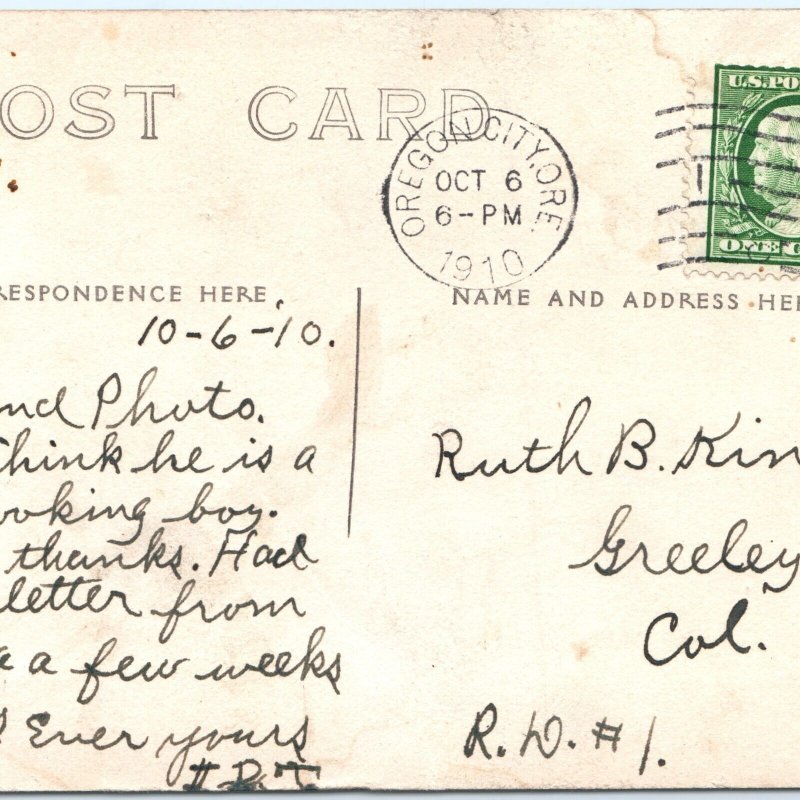 OST CARD
U.S.PO
OREGON CITY, ORE.
OCT 6
6-PM
1910
ONE C
RESPONDENCE HERE
NAME AND ADDRESS HE
10-6-10.
nd Photo.
think he is a
ooking boy.
thanks. Had
letter from
a few weeks
Ever yours
Ruth B. Kin
Greeley
Col.
R.D. #1.